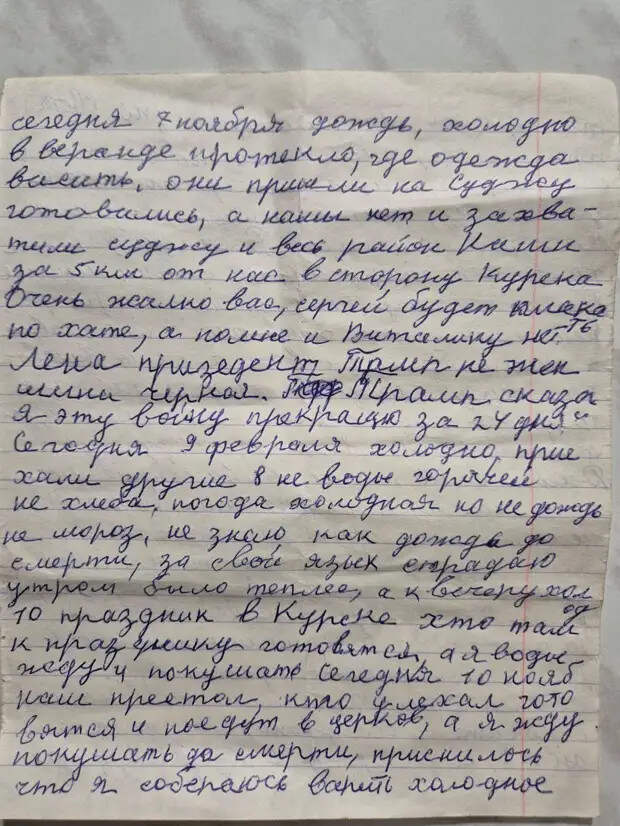 сегодня 7 ноября дождь, холодно
в веранде протекло, где одежда
васить, они пришли на Суджу
готовились, а нашы нет и захва-
тили суджу и весь район Наши
за 5 км от нас в сторону Курска
Очень жално вас, сергей будет плака
ть
по хате, а помне и Виталику нет.
Лена призедент Трамп не жен
шина черная. Трамп сказа
я эту войну прекращю за 24 дня"
Сегодня 9 февраля холодно, прие
хали другие 8 не воды горячей
не хлеба, погода холодная но не дождь
не мороз, не знаю как дожда до
смерти, за свой язык страдаю
утром било теплее, а к вечеру хол
од
10 праздник в Курске хто там
к празднику готовятся, а я воды
жду и покушать Сегодня 10 нояб
наш престол, кто уехал гото
вятся и поедут в церков, а я жду
покушать до смерти, приснилось
что я собераюсь варить холодное